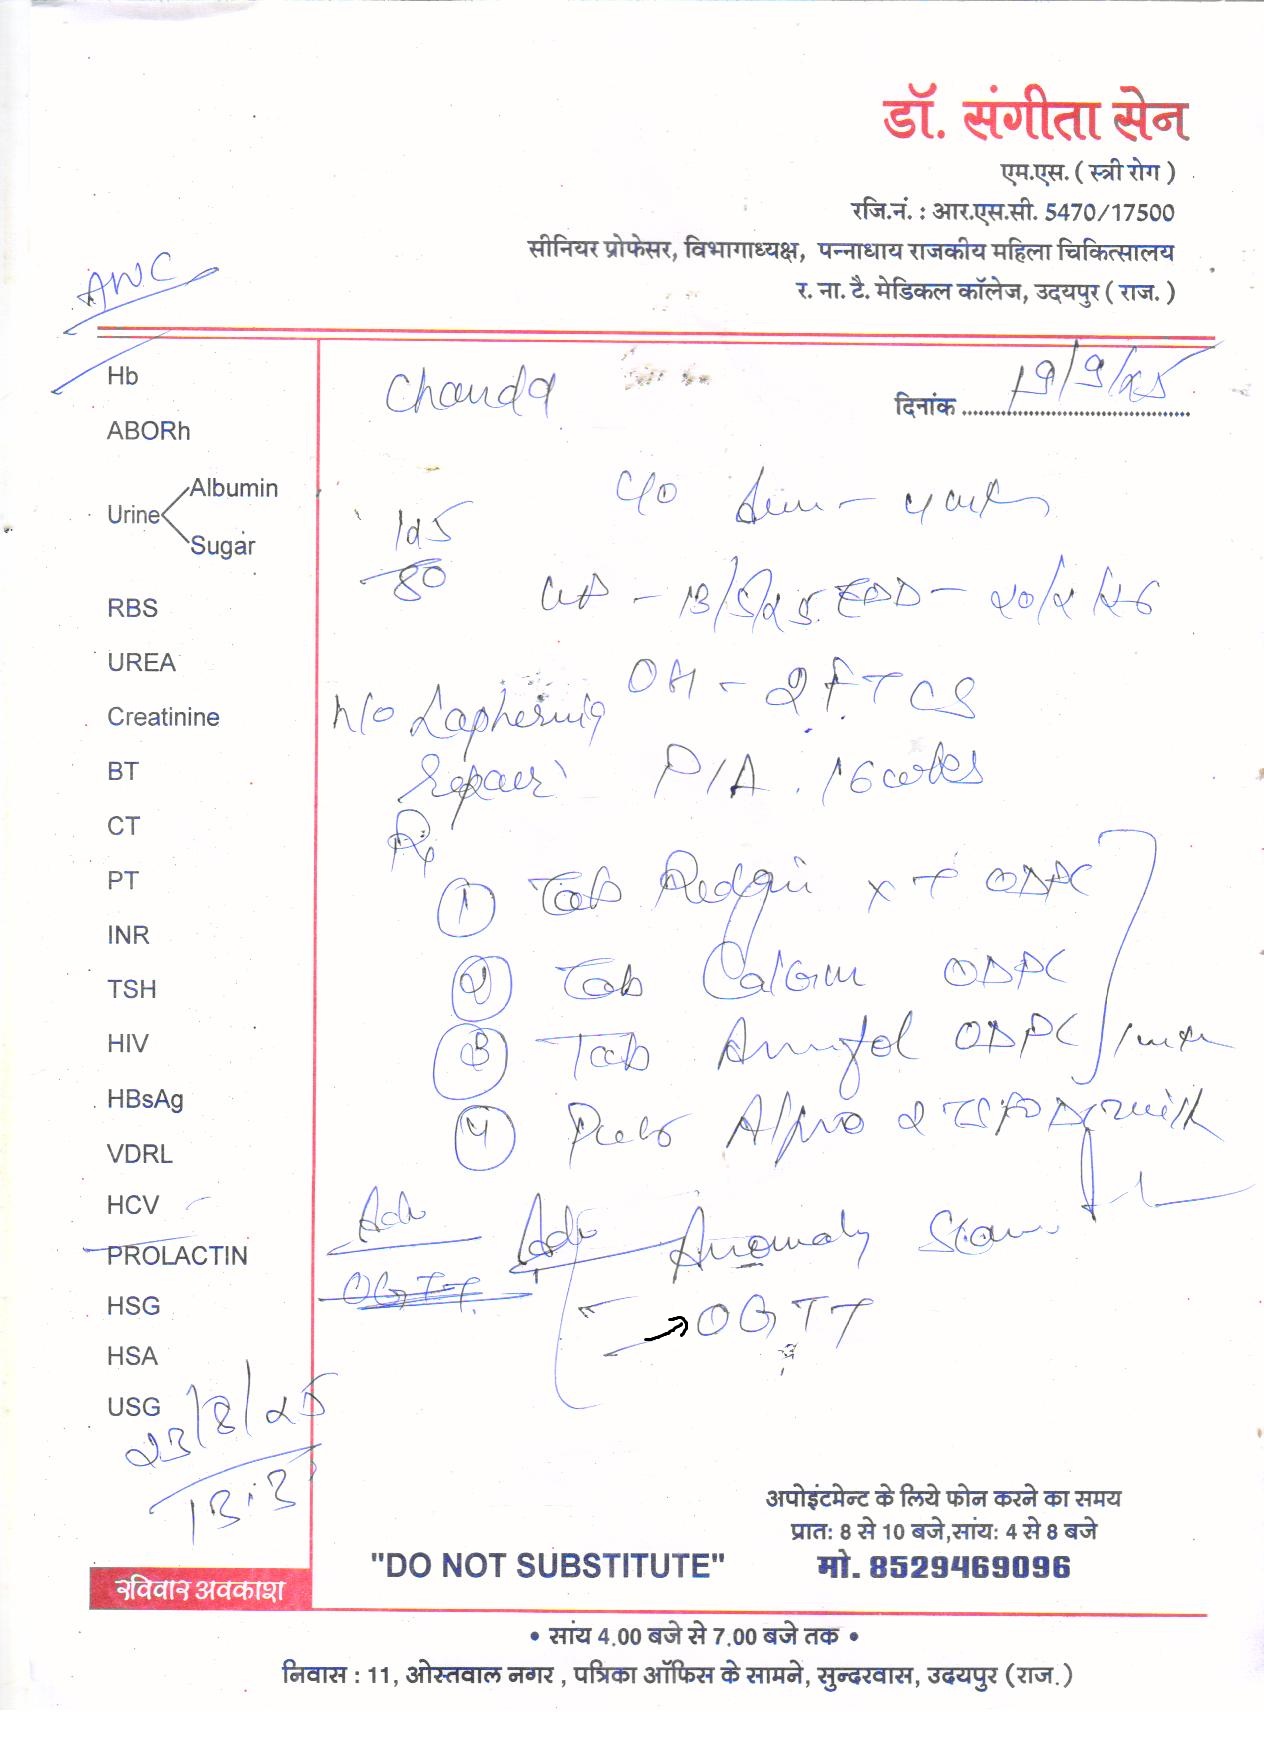 डॉ. संगीता सेन
एम.एस. ( स्त्री रोग )
रजि.नं. : आर.एस.सी. 5470/17500
सीनियर प्रोफेसर, विभागाध्यक्ष, पन्नाधाय राजकीय महिला चिकित्सालय
र. ना. टै. मेडिकल कॉलेज, उदयपुर ( राज. )
ANC
Hb
ABORh
Urine Albumin
Sugar
RBS
UREA
Creatinine
BT
CT
PT
INR
TSH
HIV
HBsAg
VDRL
HCV
PROLACTIN
HSG
HSA
USG
23/8/25
13.3
Chanda
दिनांक 19/9/25
C/O
125
80
- 13/5/25. EDD - 20/2/26
OH - 2 FTCS
h/o
repair
P/A . 16 wks
Rx
1 Tab x T ODPC
2 Tab ODPC
3 Tab ODPC
4 Alpro 2 TSF OD milk
Adv
OGTT
Adv Anomaly Scan
→ OGTT
अपोइंटमेन्ट के लिये फोन करने का समय
प्रात: 8 से 10 बजे,सांय: 4 से 8 बजे
"DO NOT SUBSTITUTE"
मो. 8529469096
रविवार अवकाश
• सांय 4.00 बजे से 7.00 बजे तक •
निवास : 11, ओस्तवाल नगर , पत्रिका ऑफिस के सामने, सुन्दरवास, उदयपुर (राज.)